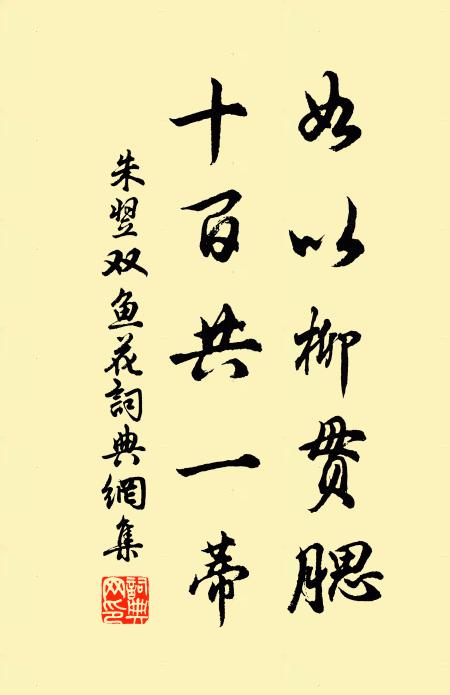 如以柳貫腮
十百共一蒂
朱翌双鱼花詞典網集
詞典
网印